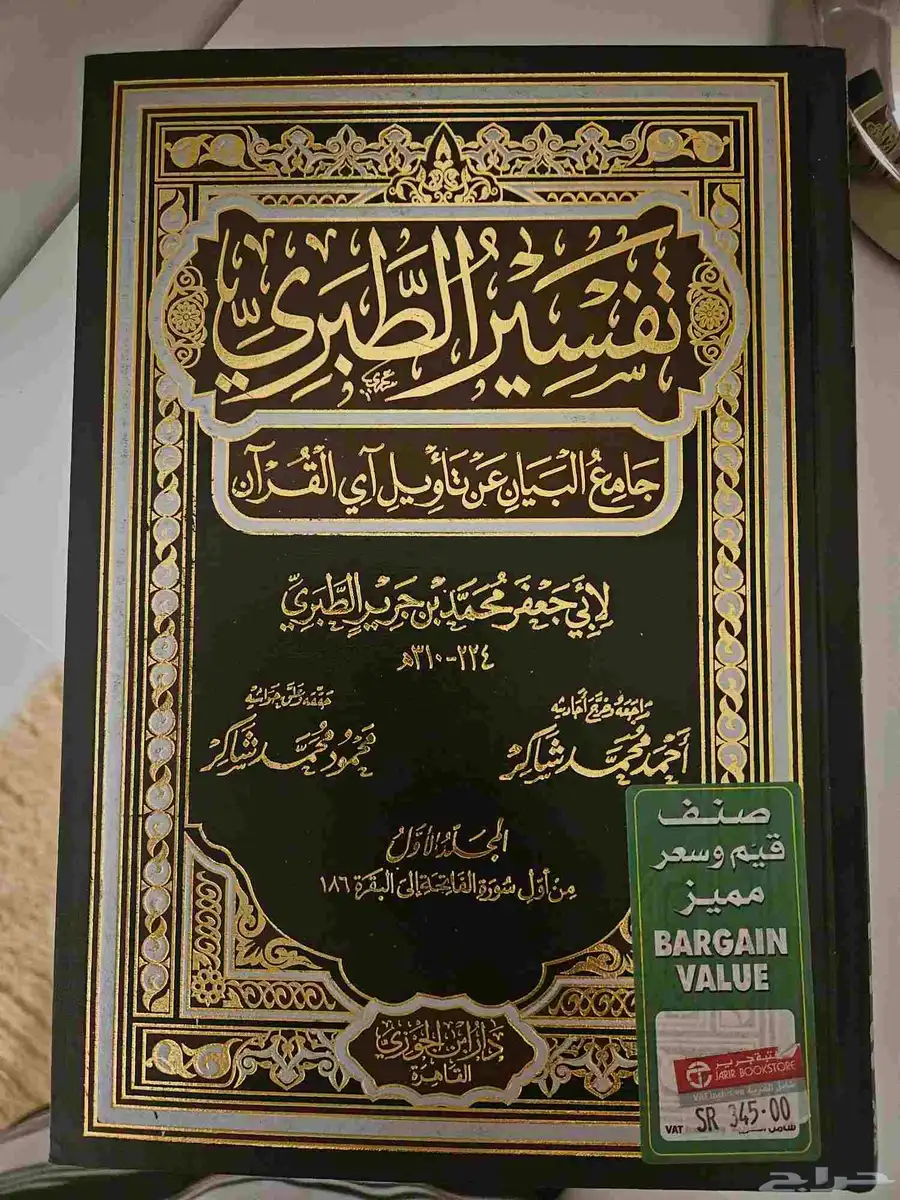 تَفْسِيرُ الطَّبَرِيِّ
جَامِعُ الْبَيَانِ عَنْ تَأْوِيلِ آيِ الْقُرْآنِ
لِأَبِي جَعْفَر مُحَمَّد بْنِ جَرِيرٍ الطَّبَرِيِّ
٢٢٤-٣١٠هـ
رَاجَعَهُ وَخَرَّجَ أَحَادِيثَهُ
أَحْمَد مُحَمَّد شَاكِر
حَقَّقَهُ وَعَلَّقَ حَوَاشِيَهُ
مَحْمُود مُحَمَّد شَاكِر
المُجَلَّدُ الأَوَّلُ
مِنْ أَوَّلِ سُورَةِ الفَاتِحَةِ إلَى البَقَرَة ١٨٦
دَارُ ابْنِ الجَوْزِي
القَاهِرَة
صنف
قيّم وسعر
مميز
BARGAIN
VALUE
مكتبة جرير
JARIR BOOKSTORE
شامل الضريبة VAT Inclusive
VAT SR 345.00 شامل
حراج